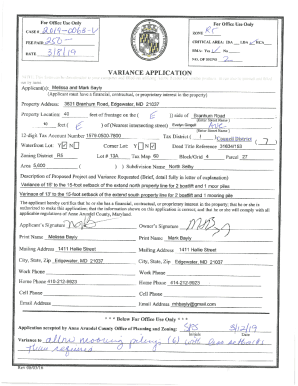 For Office Use Only
CASE # 2019-0065-V
FEE PAID 250-
DATE 3/8/19
For Office Use Only
ZONE R5
CRITICAL AREA: IDA LDA RCA
BMA: Yes No
NO. OF SIGNS 2
VARIANCE APPLICATION
Applicant(s): Melissa and Mark Bayly
(Applicant must have a financial, contractual, or proprietary interest in the property)
Property Address: 3831 Branhum Road, Edgewater, MD 21037
Property Location: 40 feet of frontage on the E side of Branhum Road
feet E of (Nearest intersecting street)
(Enter Street Name)
12-digit Tax Account Number 1579.0500.7800 Tax District 1 Council District 7
Waterfront Lot: Y N Corner Lot: Y N Deed Title Reference 31604/193
Zoning District R5 Lot # 13A Tax Map 60 Block/Grid 4 Parcel 27
Area 5,600 Subdivision Name North Selby
Description of Proposed Project and Variance Requested (Brief, detail fully in letter of explanation)
Variance of 15' to the 15-foot setback of the extend north property line for 2 boatlift and 1 moor piles
Variance of 13' to the 15-foot setback of the extend south property line for 2 boatlift and 1 mooring pile
The applicant hereby certifies that he or she has a financial, contractual, or proprietary interest in the property; that he or she is
authorized to make this application; that the information shown on this application is correct; and that he or she will comply with all
applicable regulations of Anne Arundel County, Maryland.
Applicant's Signature Owner's Signature
Print Name Melissa Bayly Print Name Mark Bayly
Mailing Address 1411 Hallie Street Mailing Address 1411 Hallie Street
City, State, Zip Edgewater, MD 21037 City, State, Zip Edgewater, MD 21037
Work Phone Work Phone
Home Phone 410-212-9923 Home Phone 414-212-9923
Cell Phone Cell Phone
Email Address Email Address mhbayly@gmail.com
*** Below For Office Use Only ***
Application accepted by Anne Arundel County Office of Planning and Zoning: 3/12/19
Initials Date
Variance to allow mooring pilings (6) with less setbacks
than required